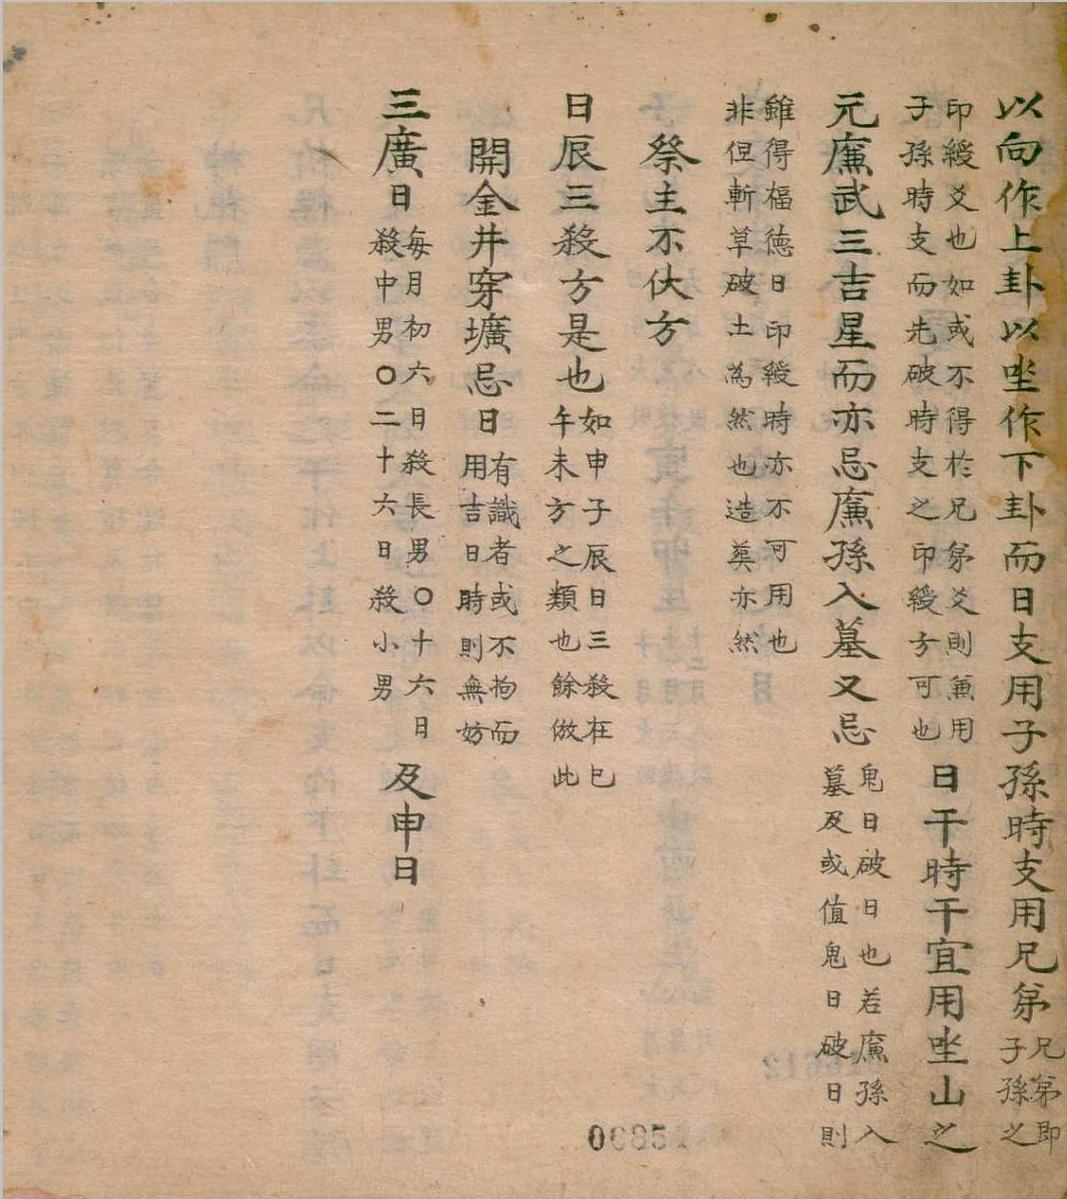 以向作上卦以坐作下卦而日支用子孫時支用兄弟兄弟即子孫之
印綬爻也如或不得於兄弟爻則兼用子孫時支而先破時支之印綬方可也日干時干宜用坐山之
元廉武三吉星而亦忌廉孫入墓又忌鬼日破日也若廉孫入墓及或值鬼日破日則
雖得福德日印綬時亦不可用也非但斬草破土為然也造葬亦然
祭主不伏方
日辰三殺方是也如申子辰日三殺在巳午未方之類也餘倣此
開金井穿壙忌日有識者或不拘而用吉日時則無妨
三廣日每月初六日殺長男○十六日殺中男○二十六日殺小男及申日